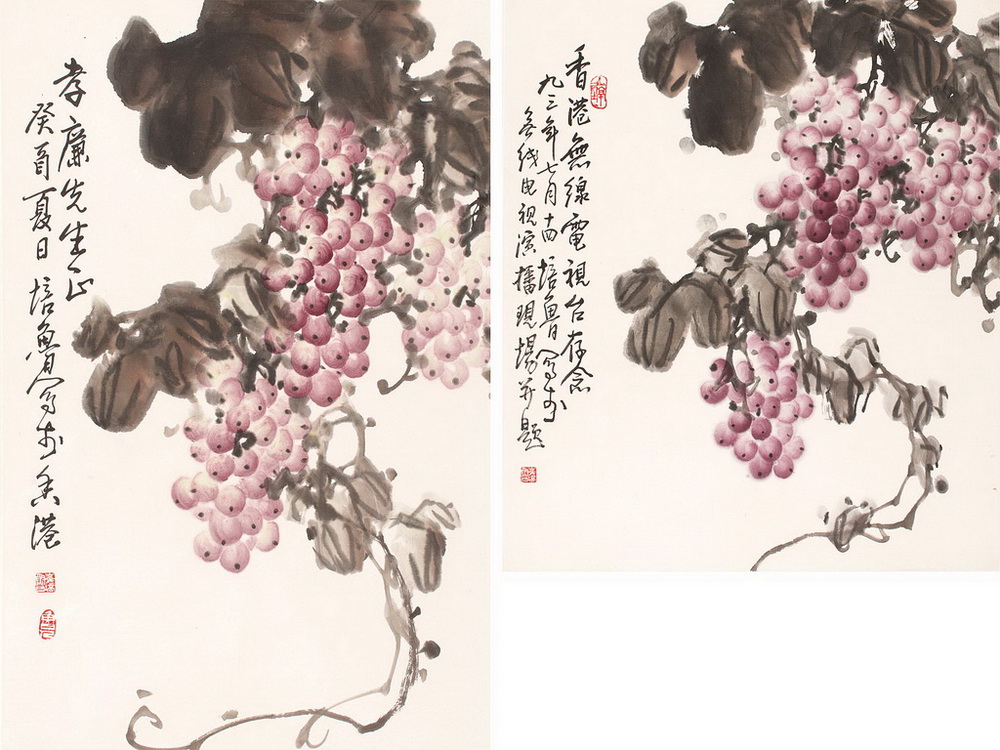 孝廉先生正
癸酉夏日培鲁写於香港
香港無線電視台存念
九三年七月十四培鲁写於
無线电视演播现場并题